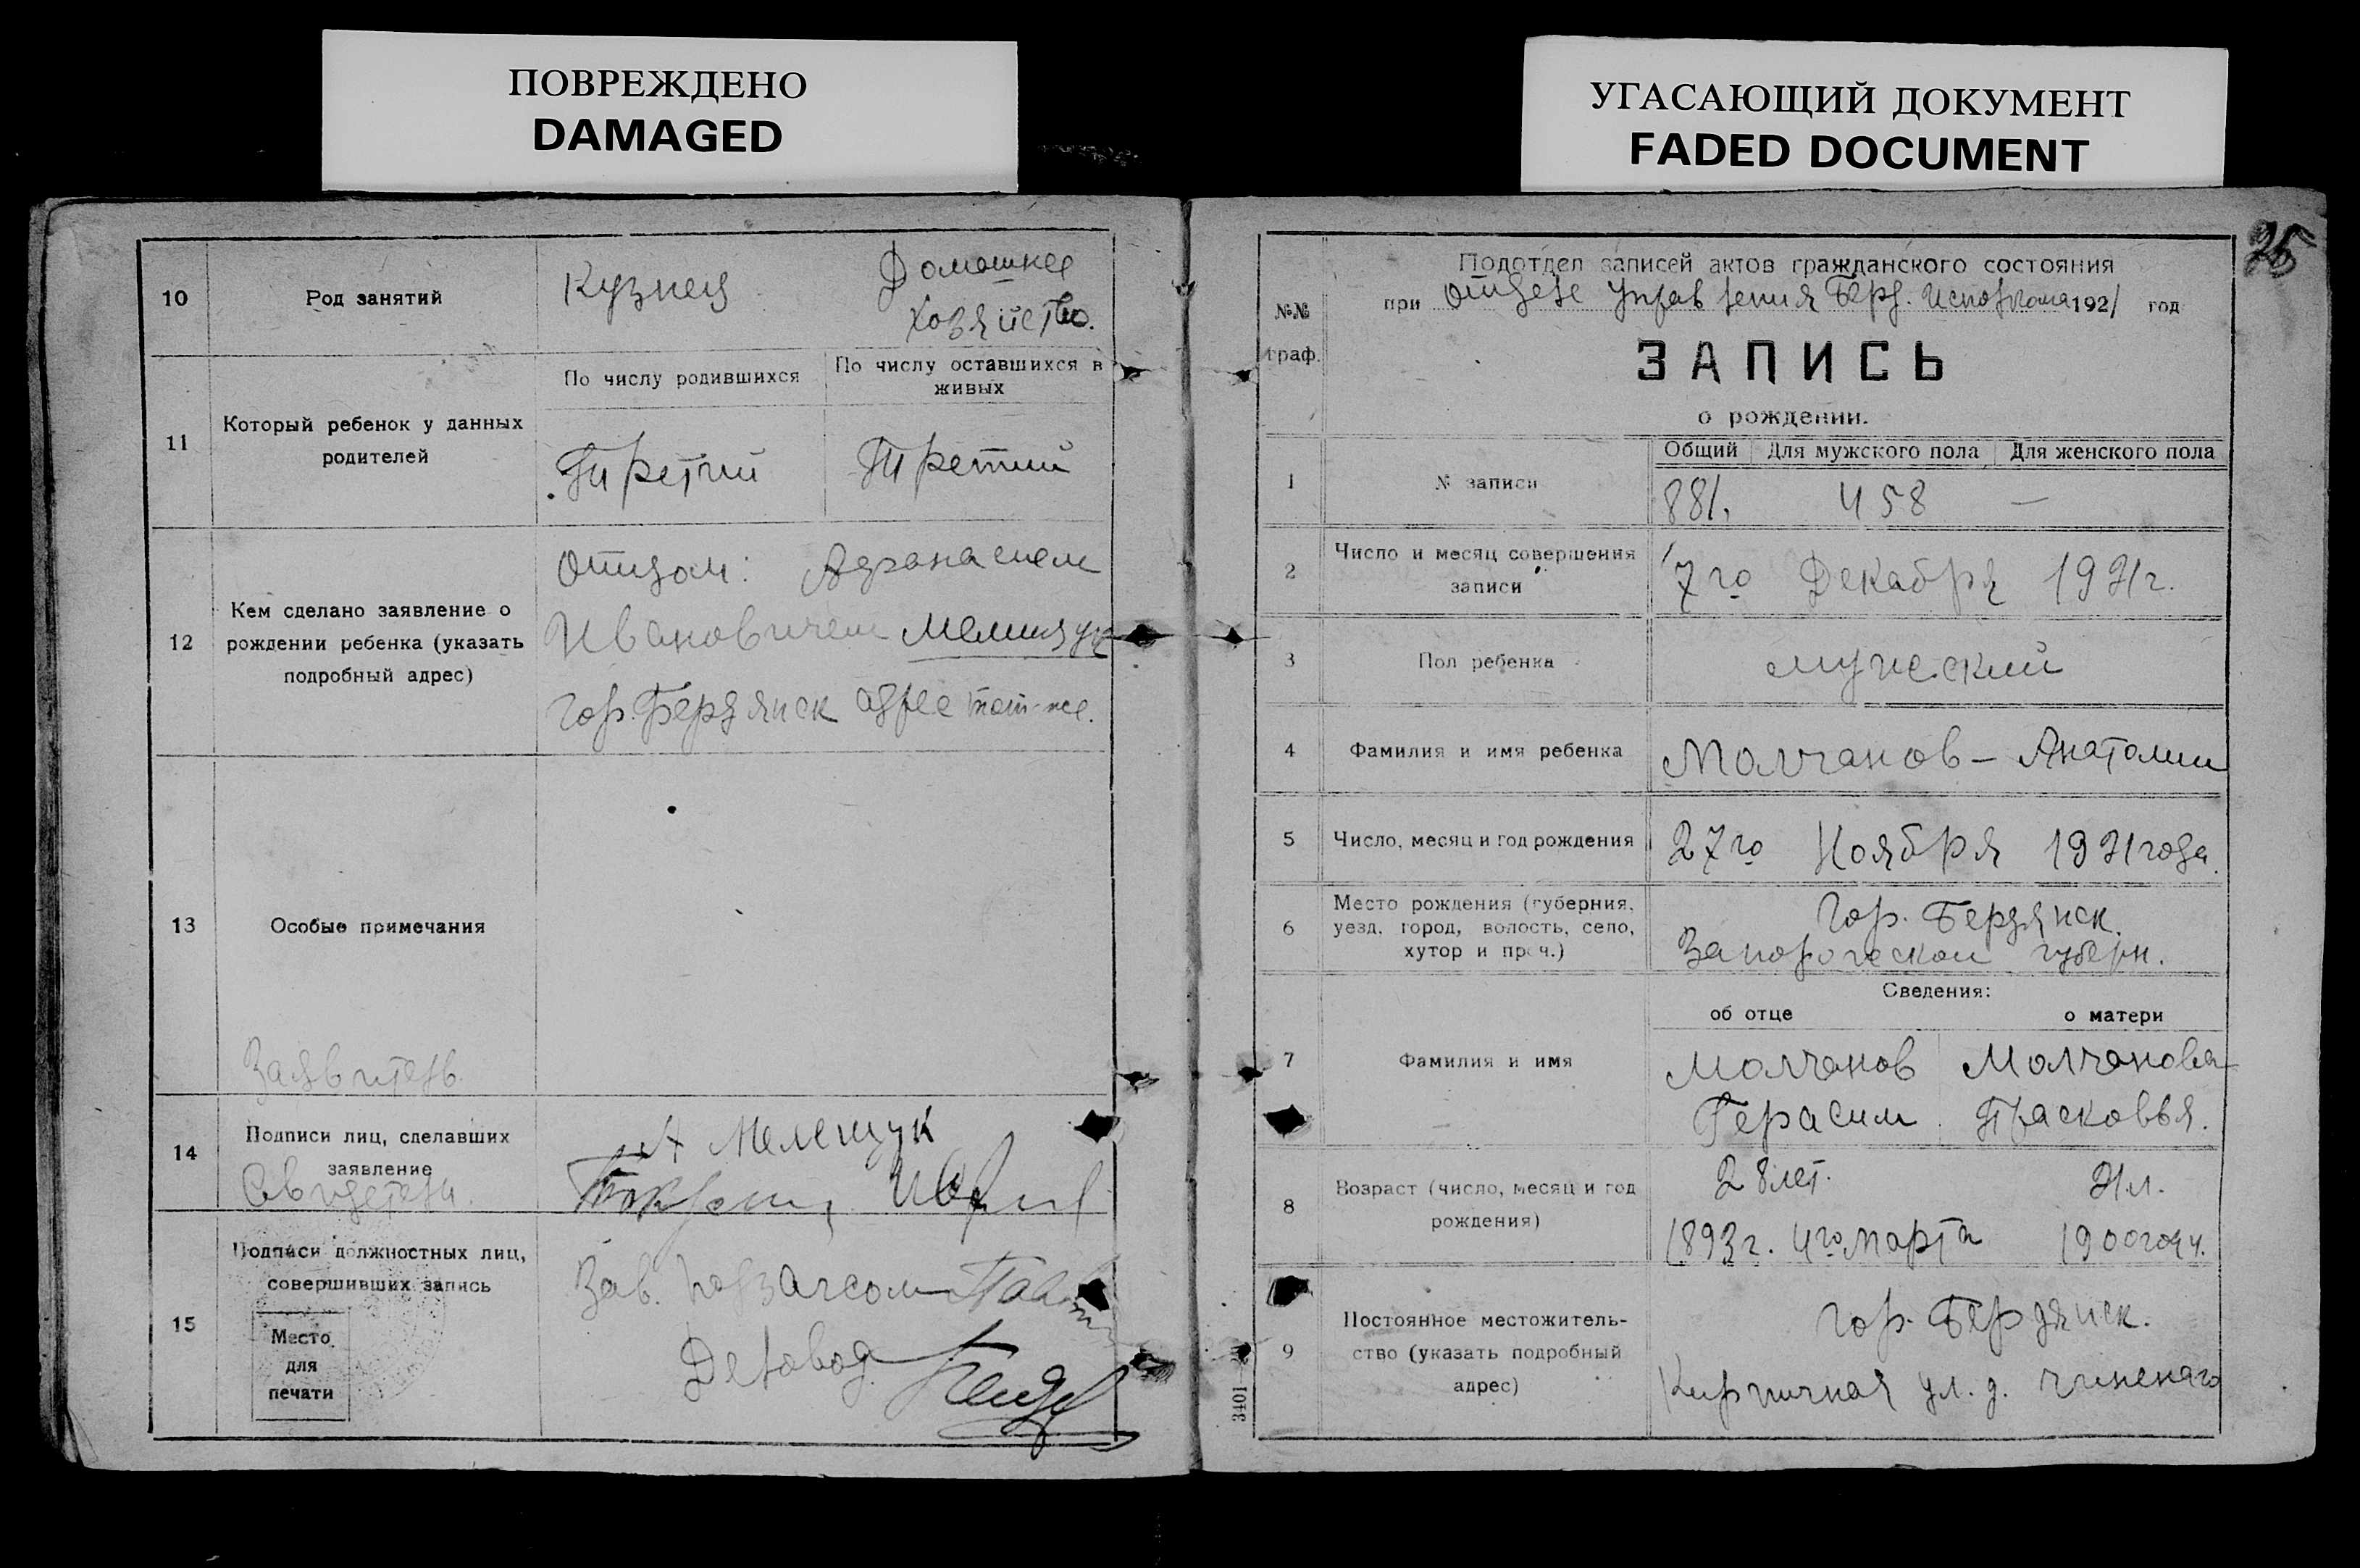 ПОВРЕЖДЕНО
DAMAGED
УГАСАЮЩИЙ ДОКУМЕНТ
FADED DOCUMENT
10
Род занятий
Кузнец
Домашнее
хозяйство.
11
Который ребенок у данных
родителей
По числу родившихся
По числу оставшихся в
живых
Третий
Третий
12
Кем сделано заявление о
рождении ребенка (указать
подробный адрес)
Отцом: Афанасием
Ивановичем Мелещук
гор. Бердянск адрес тот-же.
13
Особые примечания
Заявитель.
14
Подписи лиц, сделавших
заявление
Свидетели.
А Мелещук
15
Подписи должностных лиц,
совершивших запись
Место
для
печати
Зав.
Деловод
25
№№
граф.
Подотдел записей актов гражданского состояния
при Отделе Управления Берд. Исполкома 1921 год
ЗАПИСЬ
о рождении.
1
№ записи
Общий
Для мужского пола
Для женского пола
881.
458
—
2
Число и месяц совершения
записи
7го Декабря 1921г.
3
Пол ребенка
мужеский
4
Фамилия и имя ребенка
Молчанов - Анатолий
5
Число, месяц и год рождения
27го Ноября 1921 года.
6
Место рождения (губерния,
уезд, город, волость, село,
хутор и проч.)
Гор. Бердянск.
Запорожской губерн.
Сведения:
об отце
о матери
7
Фамилия и имя
Молчанов
Герасим
Молчанова
Прасковья.
8
Возраст (число, месяц и год
рождения)
28 лет.
1893г. 4го Марта
21 л.
1900
9
Постоянное местожитель-
ство (указать подробный
адрес)
гор. Бердянск.
Кирпичная ул. д.
3401